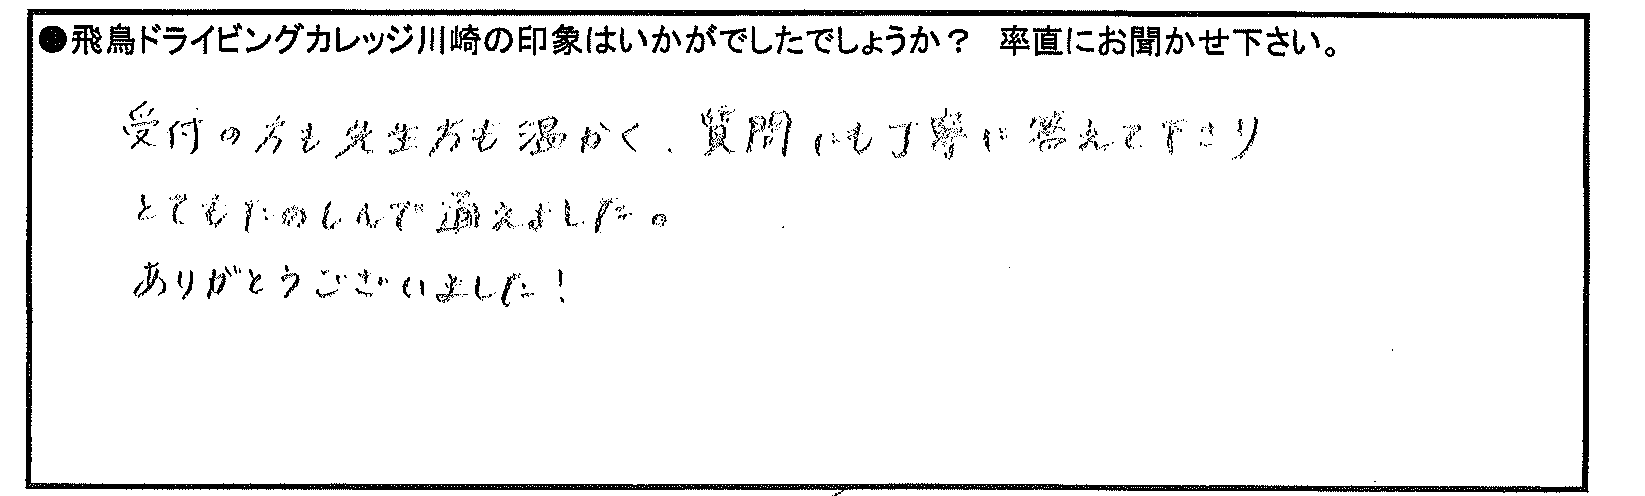 ●飛鳥ドライビングカレッジ川崎の印象はいかがでしたでしょうか？ 率直にお聞かせ下さい。
受付の方も先生方も温かく、質問にも丁寧に答えて下さり
とてもたのしんで通えました。
ありがとうございました！